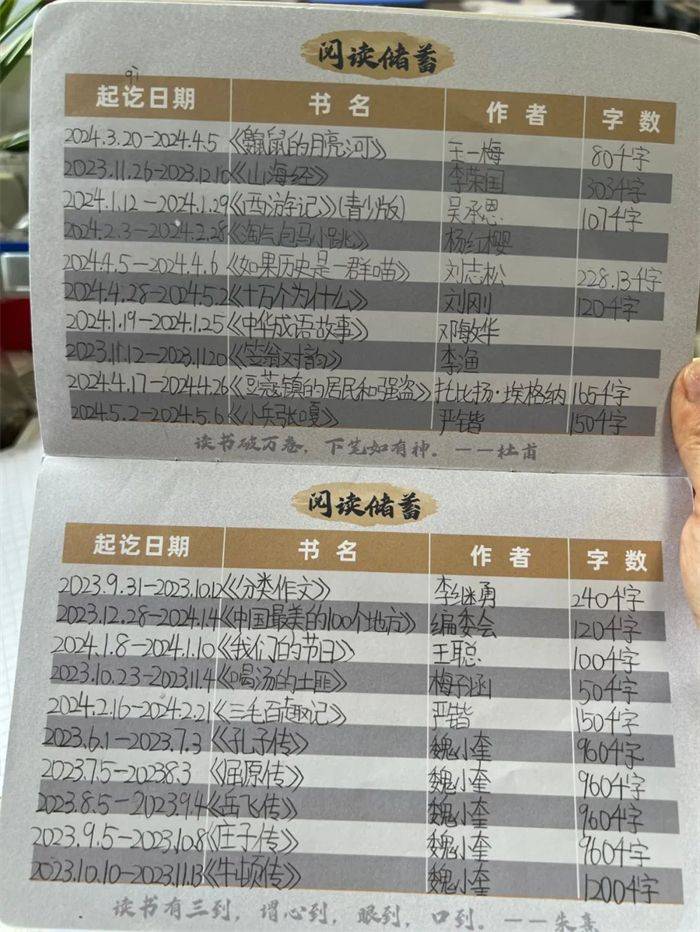 阅读储蓄
qì
起讫日期 书名 作者 字数
2024.3.20-2024.4.5 《鼹鼠的月亮河》 王一梅 80千字
2023.11.26-2023.12.10 《山海经》 李荣国 303千字
2024.1.12-2024.1.29 《西游记》(青少版) 吴承恩 107千字
2024.2.3-2024.2.28 《淘气包马小跳》 杨红樱
2024.4.5-2024.4.6 《如果历史是一群喵》 刘志松 228.13千字
2024.4.28-2024.5.2 《十万个为什么》 刘刚 120千字
2024.1.19-2024.1.25 《中华成语故事》 邓敏华
2023.11.12-2023.11.20 《笠翁对韵》 李渔
2024.4.17-2024.4.26 《豆蔻镇的居民和强盗》 托比扬·埃格纳 165千字
2024.5.2-2024.5.6 《小兵张嘎》 严锴 150千字
读书破万卷，下笔如有神。——杜甫
阅读储蓄
起讫日期 书名 作者 字数
2023.9.31-2023.10.12 《分类作文》 李继勇 240千字
2023.12.28-2024.1.4 《中国最美的100个地方》 编委会 120千字
2024.1.8-2024.1.10 《我们的节日》 王聪 100千字
2023.10.23-2023.11.4 《喝汤的土匪》 梅子涵 50千字
2024.2.16-2024.2.21 《三毛百趣记》 严锴 150千字
2023.6.1-2023.7.3 《孔子传》 魏小奎 960千字
2023.7.5-20238.3 《屈原传》 魏小奎 960千字
2023.8.5-2023.9.4 《岳飞传》 魏小奎 960千字
2023.9.5-2023.10.8 《庄子传》 魏小奎 960千字
2023.10.10-2023.11.13 《牛顿传》 魏小奎 1200千字
读书有三到，谓心到，眼到，口到。——朱熹